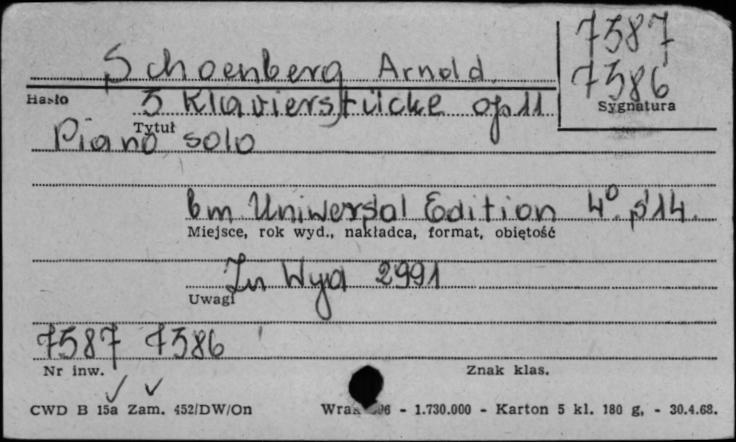 7587
Schoenberg Arnold.
7586
Hasło
5 Klavierstücke op 11
Sygnatura
Tytuł
Piano solo
bm Uniwersal Edition 4° s 14.
Miejsce, rok wyd., nakładca, format, objętość
Zn Wyd 2991
Uwagi
7587 7586
Nr inw.
Znak klas.
CWD B 15a Zam. 452/DW/On
- 1.730.000 - Karton 5 kl. 180 g, - 30.4.68.